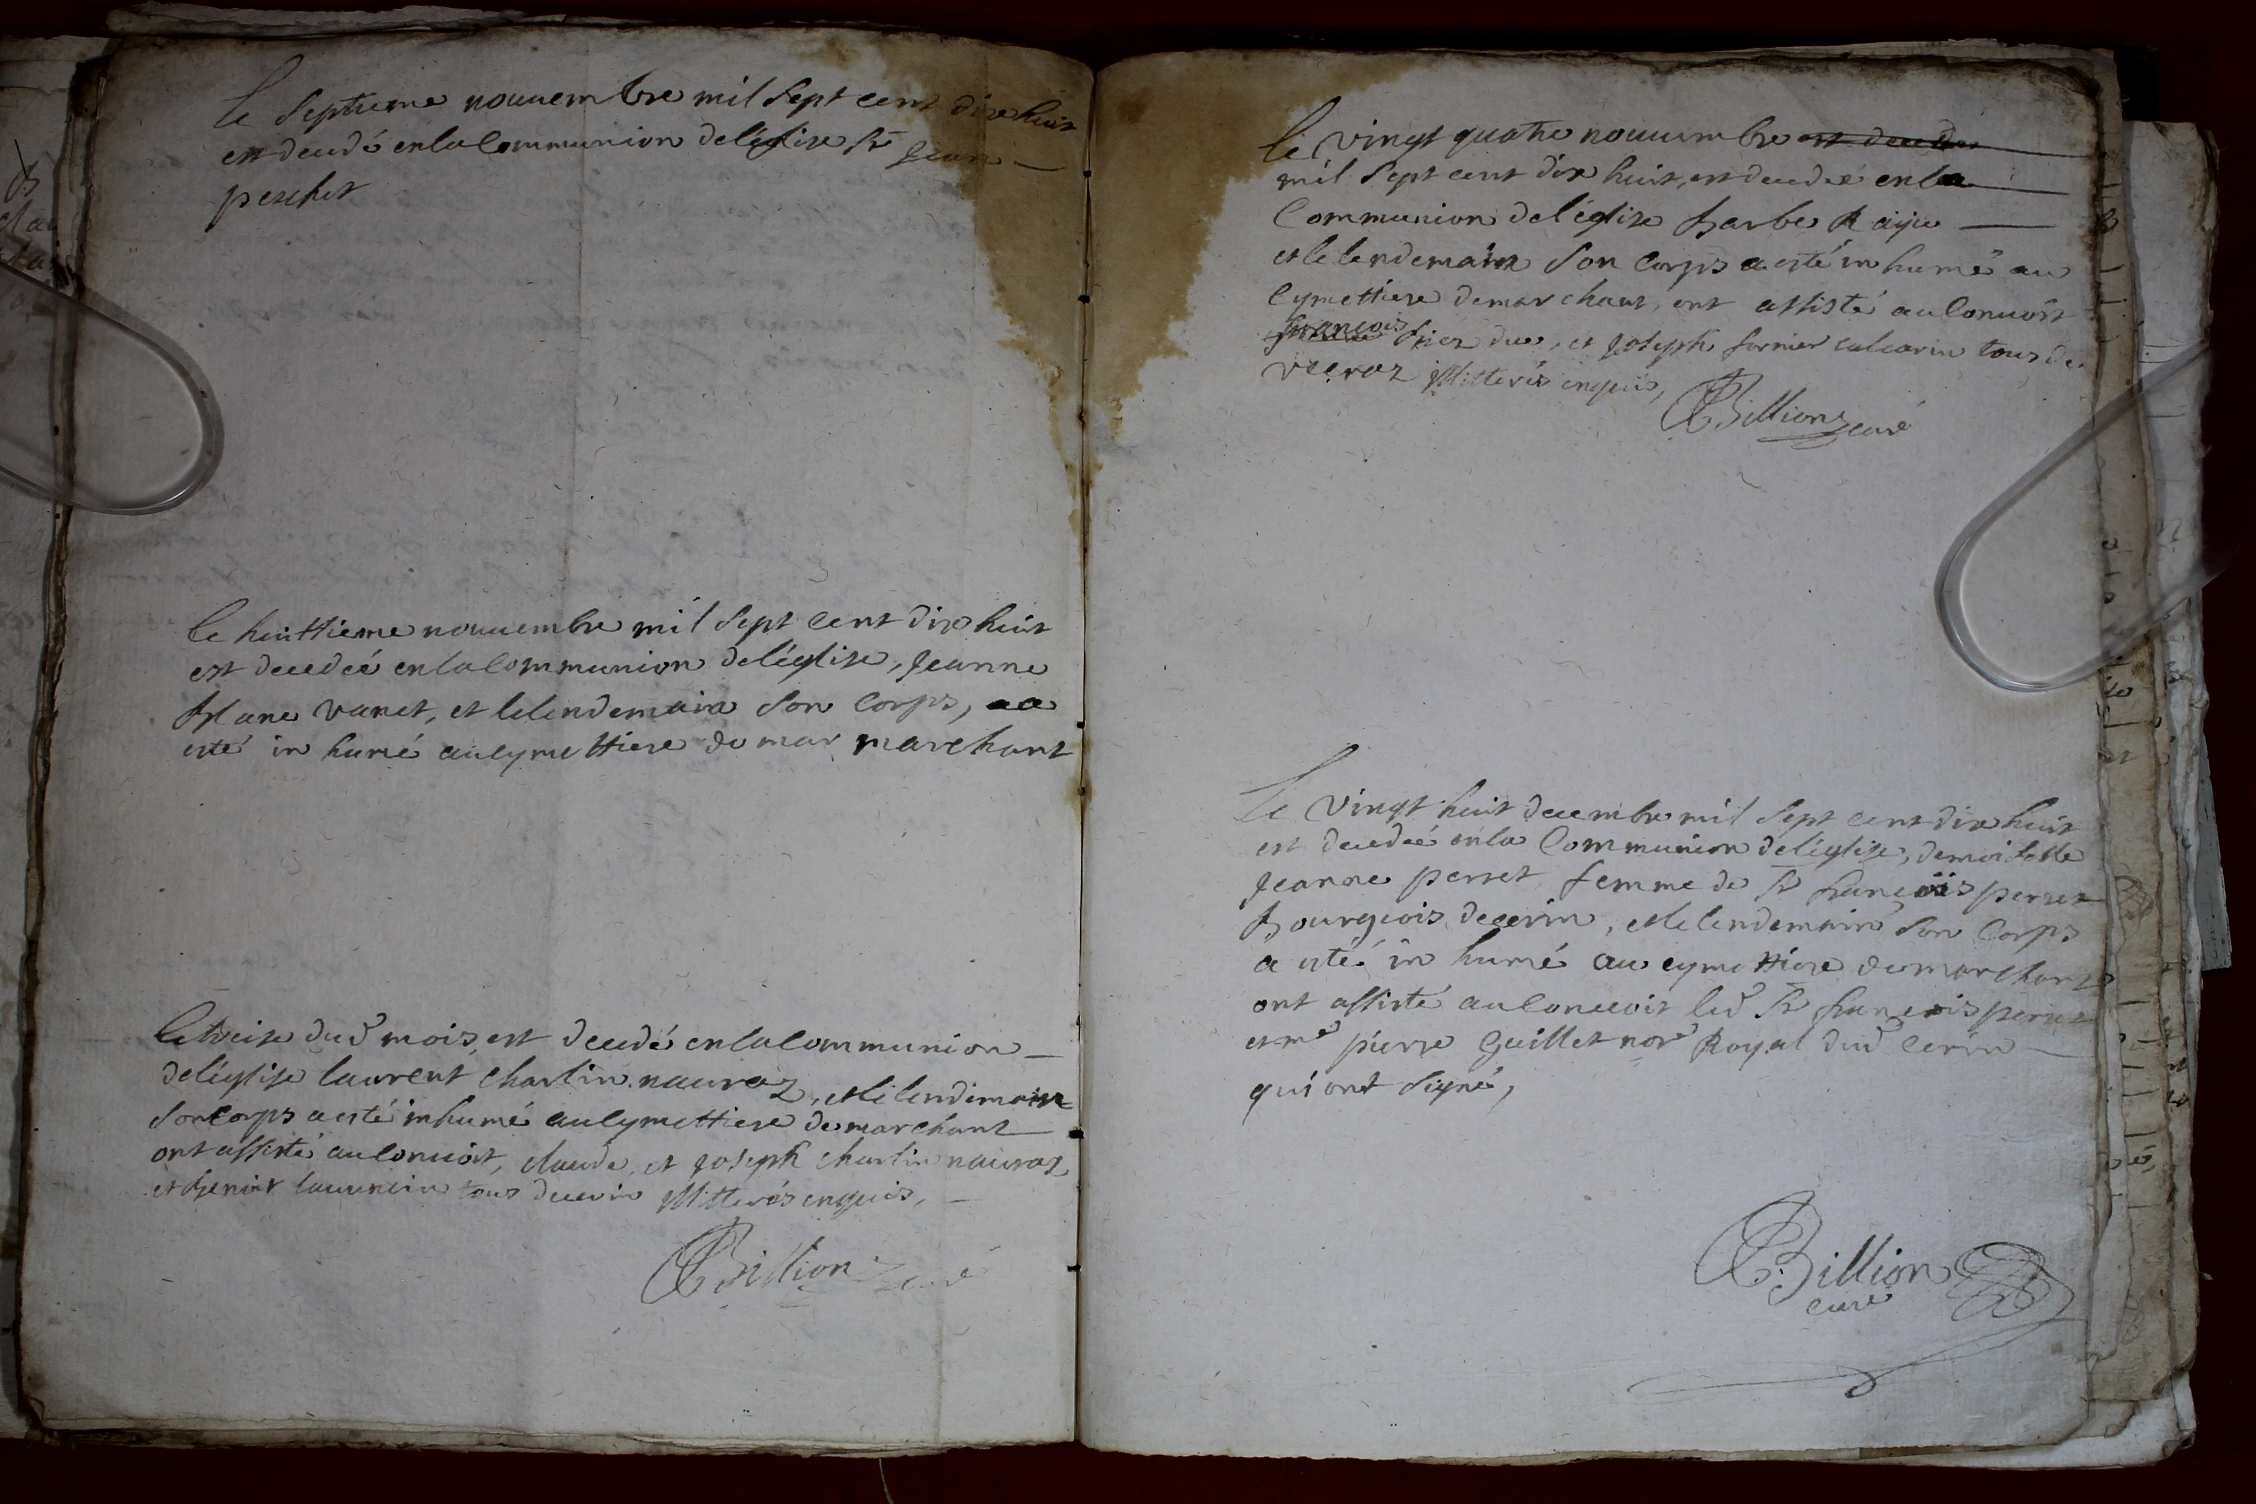 le septieme nouuembre mil sept cent dix huit
est decedé en la Communion de l'église Sr Jean
perchet
le huittieme nouuembre mil sept cent dix huit
est decedeé en la Communion de l'église, Jeanne
blanc vanet, et le lendemain son Corps, a
esté in humé au cymettiere de mar marchant
le treise dud mois, est decedé en la Communion
de l'église laurent charlin nauroz, et le lendemain
son Corps a esté inhumé au cymettiere de marchant
ont assisté au Conuoit, claude, et Joseph charlin nauroz,
et benoit laurencin tous de cerin illitterés enquis,
Billion curé
le vingt quatre nouuembre est decedée
mil sept cent dix huit, est decedeé en la
Communion de l'église barbe Raije
et le lendemain son Corps a esté in humé au
Cymettiere de marchant, ont assisté au Conuoit
françois et Joseph tous de
illitterés enquis,
Billion curé
le vingt huit decembre mil sept cent dix huit
est decedeé en la Communion de l'église, demoiselle
Jeanne perret femme de Sr françois perret
bourgeois de cerin, et le lendemain son Corps
a esté in humé au cymettiere de marchant
ont assisté au Conuoit led Sr françois perret
et me pierre Guillet nore Royal dud Cerin
qui ont signé,
Billion
curé